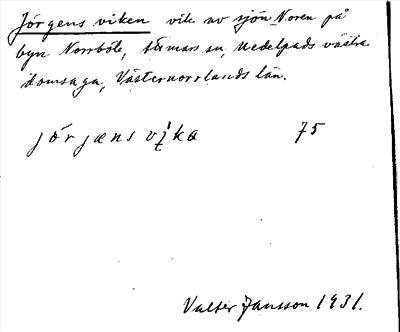 Jörgens viken vik av sjön Noren på
byn Norrböle, Stöde sn, Medelpads västra
domsaga, Västernorrlands län.
jörjens vika 75
Valter Jansson 1931.